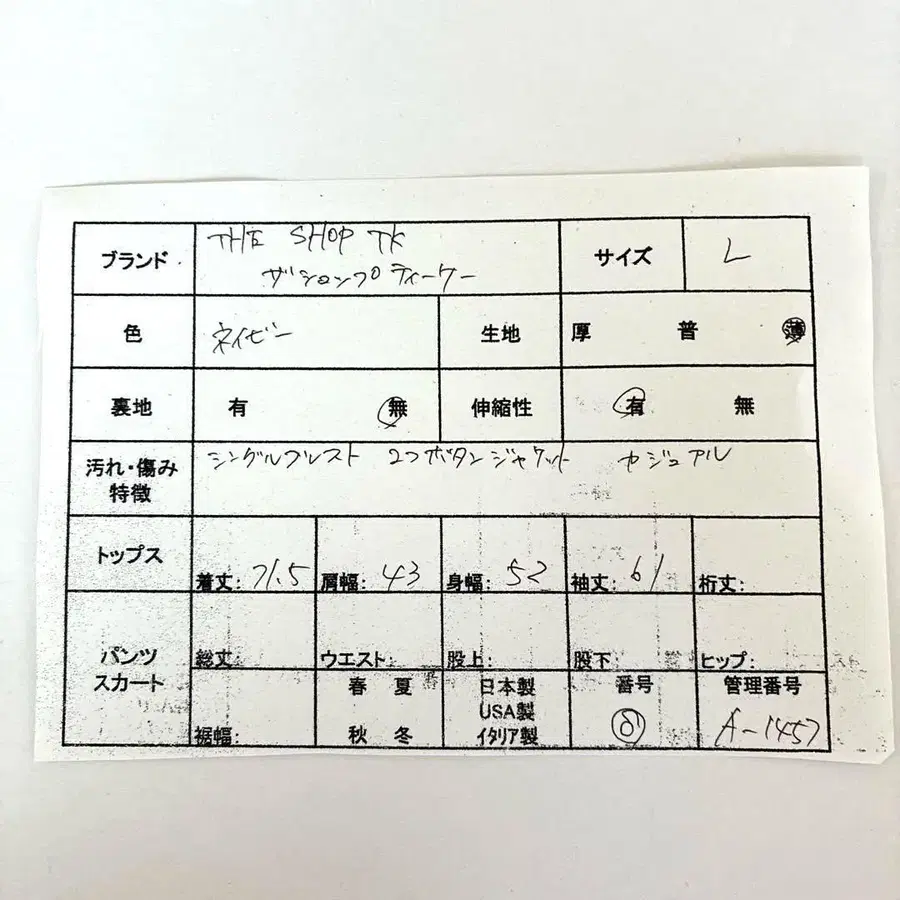 ブランド THE SHOP TK サイズ L
ザショップ ティーケー
色 ネイビー 生地 厚 普 薄
裏地 有 無 伸縮性 有 無
汚れ・傷み シングルブレスト 2つボタンジャケット カジュアル
特徴
トップス
着丈: 71.5 肩幅: 43 身幅: 52 袖丈: 61 裄丈:
パンツ
スカート
総丈: ウエスト: 股上: 股下 ヒップ:
春 夏 日本製 番号 管理番号
USA製
裾幅: 秋 冬 イタリア製 A-1457